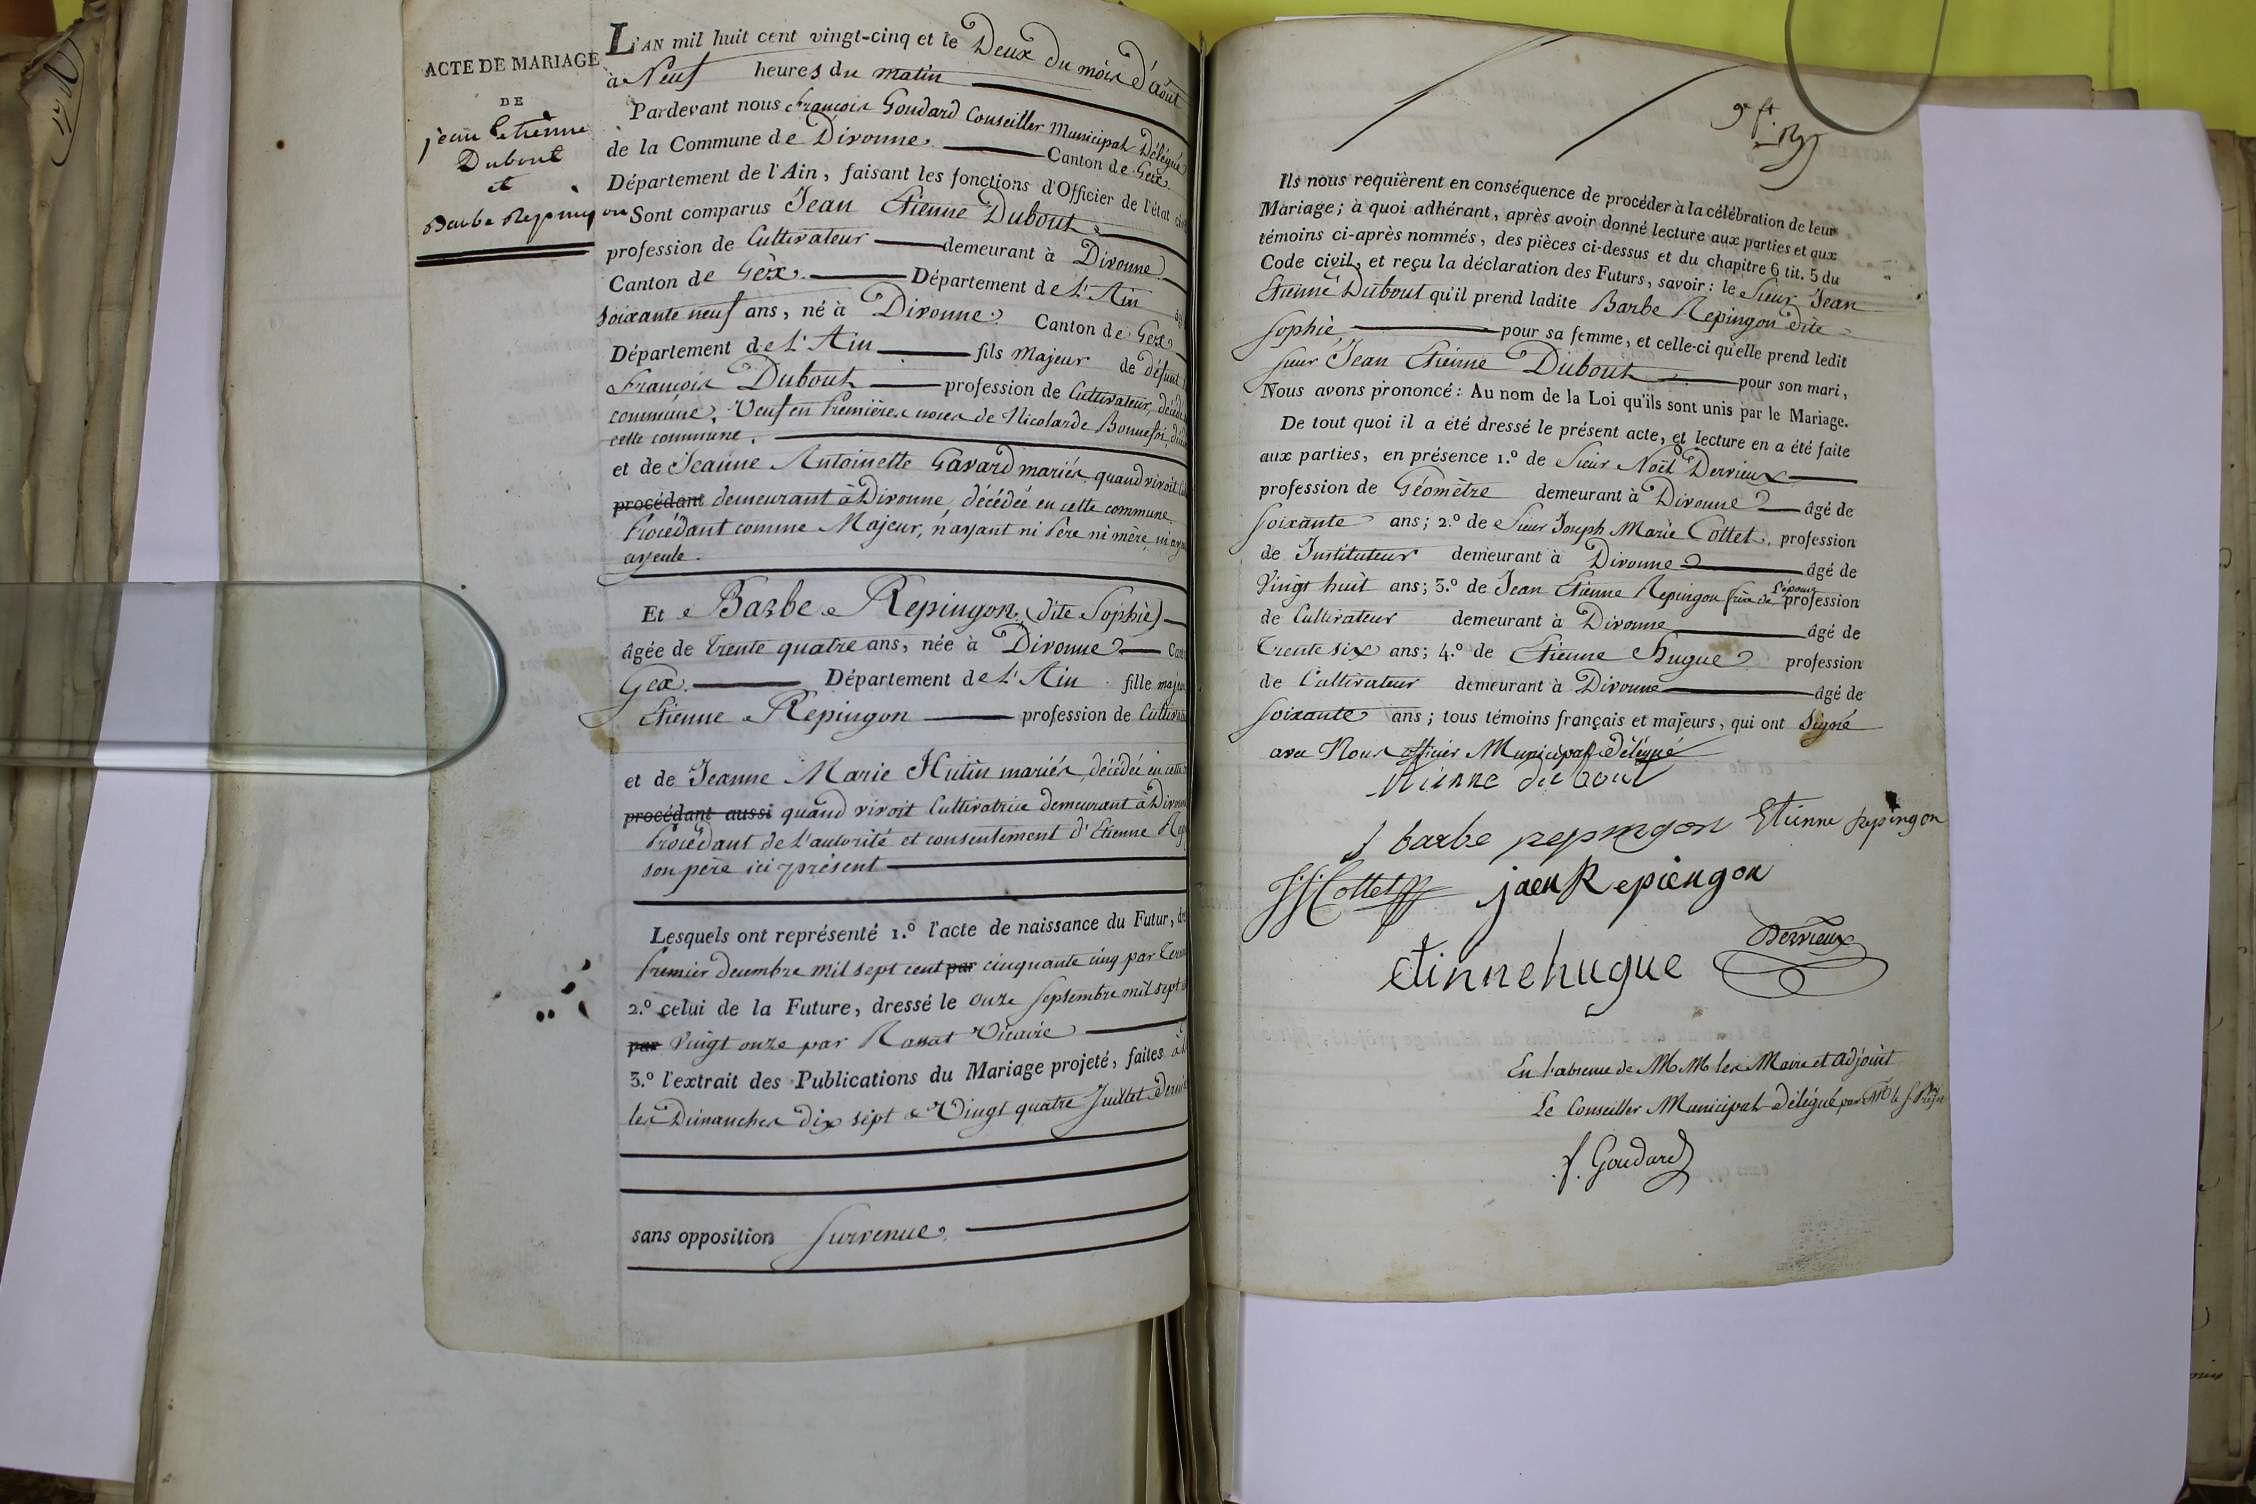 ACTE DE MARIAGE
DE
jean Etienne
Dubout
et
Barbe Repingon
L'AN mil huit cent vingt-cinq et le Deux du mois d'août
à Neuf heures du matin
Pardevant nous François Goudard Conseiller Municipal Délégué
de la Commune de Divonne Canton de Gex
Département de l'Ain, faisant les fonctions d'Officier de l'état
Sont comparus Jean Etienne Dubout
profession de Cultivateur demeurant à Divonne
Canton de Gex. Département de L'Ain
soixante neuf ans, né à Divonne. Canton de Gex
Département de L'Ain fils Majeur de défunt
François Dubout profession de Cultivateur,
commune, Veuf en Premières noces de Nicolarde Bonnefoi,
cette commune.
et de Jeanne Antoinette Gavard mariés, quand vivoit
procédant demeurant à Divonne, décédée en cette commune.
Procédant comme Majeur, n'ayant ni Père ni mère, ni
ayeule.
Et Barbe Repingon (dite Sophie)
âgée de Trente quatre ans, née à Divonne
Gex. Département de L'Ain fille
Etienne Repingon profession de
et de Jeanne Marie Hutin mariés, décédée en cette
procédant aussi quand vivoit Cultivatrice demeurant à
Procédant de L'autorité et consentement d'Etienne
son père ici présent
Lesquels ont représenté 1.º l'acte de naissance du Futur,
Premier decembre mil sept cent par cinquante cinq par
2.º celui de la Future, dressé le onze Septembre mil sept
par Vingt onze par Rassat Vicaire
3.º l'extrait des Publications du Mariage projeté, faites
les Dimanches dix sept & Vingt quatre Juillet
sans opposition Survenue.
Ils nous requièrent en conséquence de procéder à la célébration de leur
Mariage; à quoi adhérant, après avoir donné lecture aux parties et aux
témoins ci-après nommés, des pièces ci-dessus et du chapitre 6 tit. 5 du
Code civil, et reçu la déclaration des Futurs, savoir: le Sieur Jean
Etienne Dubout qu'il prend ladite Barbe Repingon dite
Sophie pour sa femme, et celle-ci qu'elle prend ledit
sieur Jean Etienne Dubout pour son mari,
Nous avons prononcé: Au nom de la Loi qu'ils sont unis par le Mariage.
De tout quoi il a été dressé le présent acte, et lecture en a été faite
aux parties, en présence 1.º de Sieur Noël Derrieux
profession de Géomètre demeurant à Divonne âgé de
soixante ans; 2.º de Sieur Joseph Marie Cottet, profession
de Instituteur demeurant à Divonne âgé de
Vingt huit ans; 3.º de Jean Etienne Repingon frère de L'épouse profession
de Cultivateur demeurant à Divonne âgé de
Trente six ans; 4.º de Etienne Hugue profession
de Cultivateur demeurant à Divonne âgé de
soixante ans; tous témoins français et majeurs, qui ont signé
avec Nous officier Municipal délégué
Etienne dubout
barbe repingon Etienne repingon
Cottet jaen Repiengon
Derrieux
etinnehugue
En l'absence de M M les Maire et adjoint
Le Conseiller Municipal délégué par Mr le S. Préfet
f. Goudard